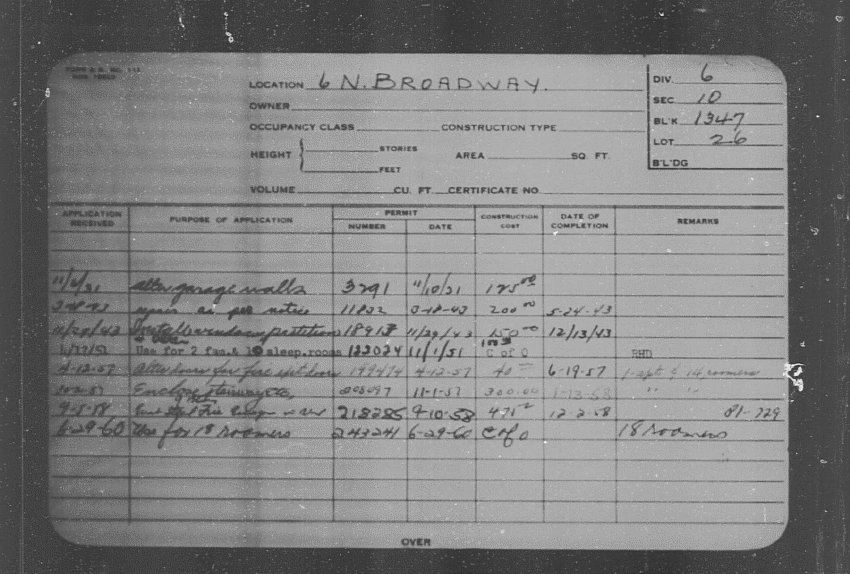 LOCATION 6 N. BROADWAY.
OWNER
OCCUPANCY CLASS CONSTRUCTION TYPE
HEIGHT STORIES AREA SQ. FT.
FEET
VOLUME CU. FT. CERTIFICATE NO.
DIV. 6
SEC 10
BL'K 1347
LOT 26
B'L'DG
APPLICATION RECEIVED PURPOSE OF APPLICATION PERMIT NUMBER DATE CONSTRUCTION COST DATE OF COMPLETION REMARKS
alter garage walls 3291 11/10/31
repair as per notice 200 00 5-24-43
partition 11/29/43 150 00 12/13/43
Use for 2 fam. & sleep. rooms 122024 11/1/51 C of O RHD
4-12-57 Alter doors for fire exit doors 199474 4-12-57 40 6-19-57 1 apt & 14 roomers
10-2-57 Enclose stairway 11-1-57 300.00 1-13-58 " "
9-5-58 Fire 218285 9-10-58 12-2-58 81-729
6-29-60 Use for 18 roomers 243241 6-29-60 C of O 18 roomers
OVER